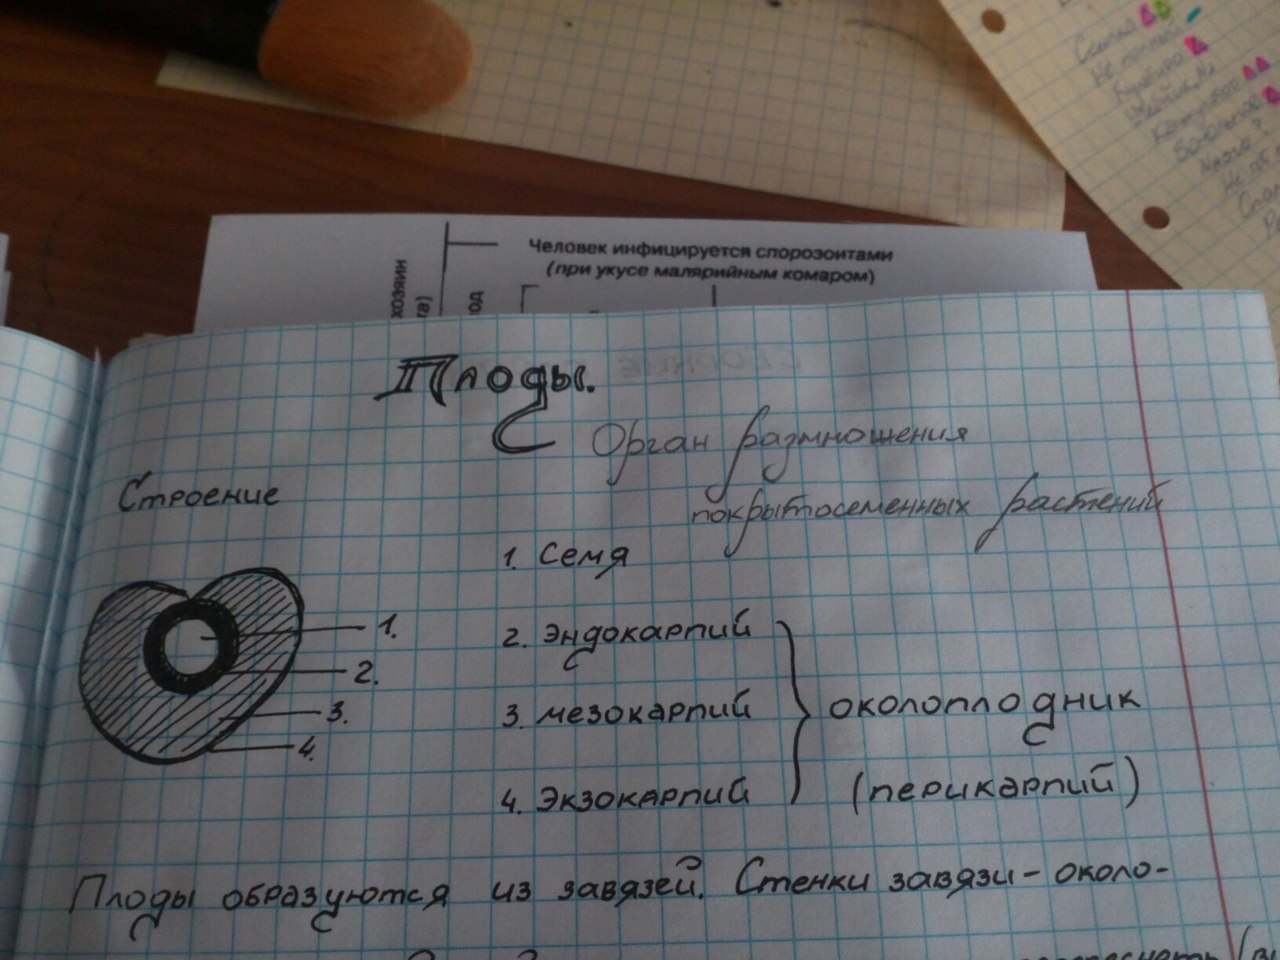 Человек инфицируется спорозоитами
(при укусе малярийным комаром)
хозяин
Плоды.
Орган размножения
покрытосеменных растений
Строение
1. Семя
2. Эндокарпий
3. мезокарпий
4. Экзокарпий
околоплодник
(перикарпий)
1.
2.
3.
4.
Плоды образуются из завязей. Стенки завязи - около-